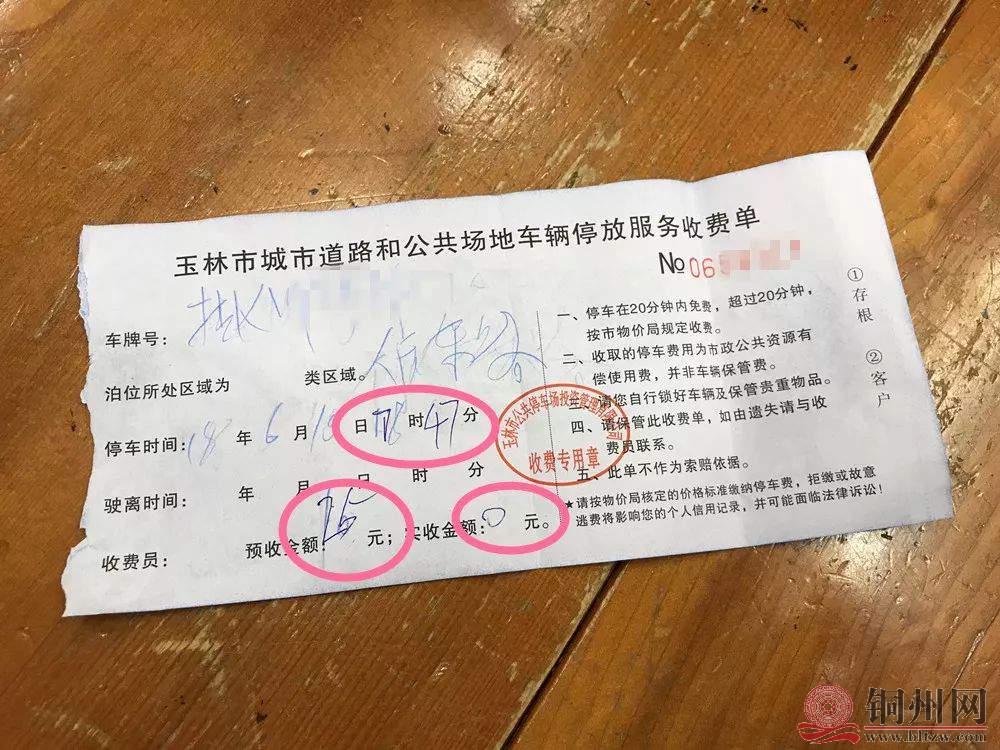 玉林市城市道路和公共场地车辆停放服务收费单
№06
车牌号：桂K
泊位所处区域为 类区域。
停车时间：18 年 6 月 18 日 时 47 分
驶离时间： 年 月 日 时 分
收费员： 预收金额： 元；实收金额：0 元。
一、停车在20分钟内免费，超过20分钟，
按市物价局规定收费。
二、收取的停车费用为市政公共资源有
偿使用费，并非车辆保管费。
三、请您自行锁好车辆及保管贵重物品。
四、请保管此收费单，如由遗失请与收
费员联系。
五、此单不作为索赔依据。
★请按物价局核定的价格标准缴纳停车费，拒缴或故意
逃费将影响您的个人信用记录，并可能面临法律诉讼！
①存根 ②客户
玉林市公共停车场投资管理有限公司
收费专用章
铜州网
www.bltzw.com